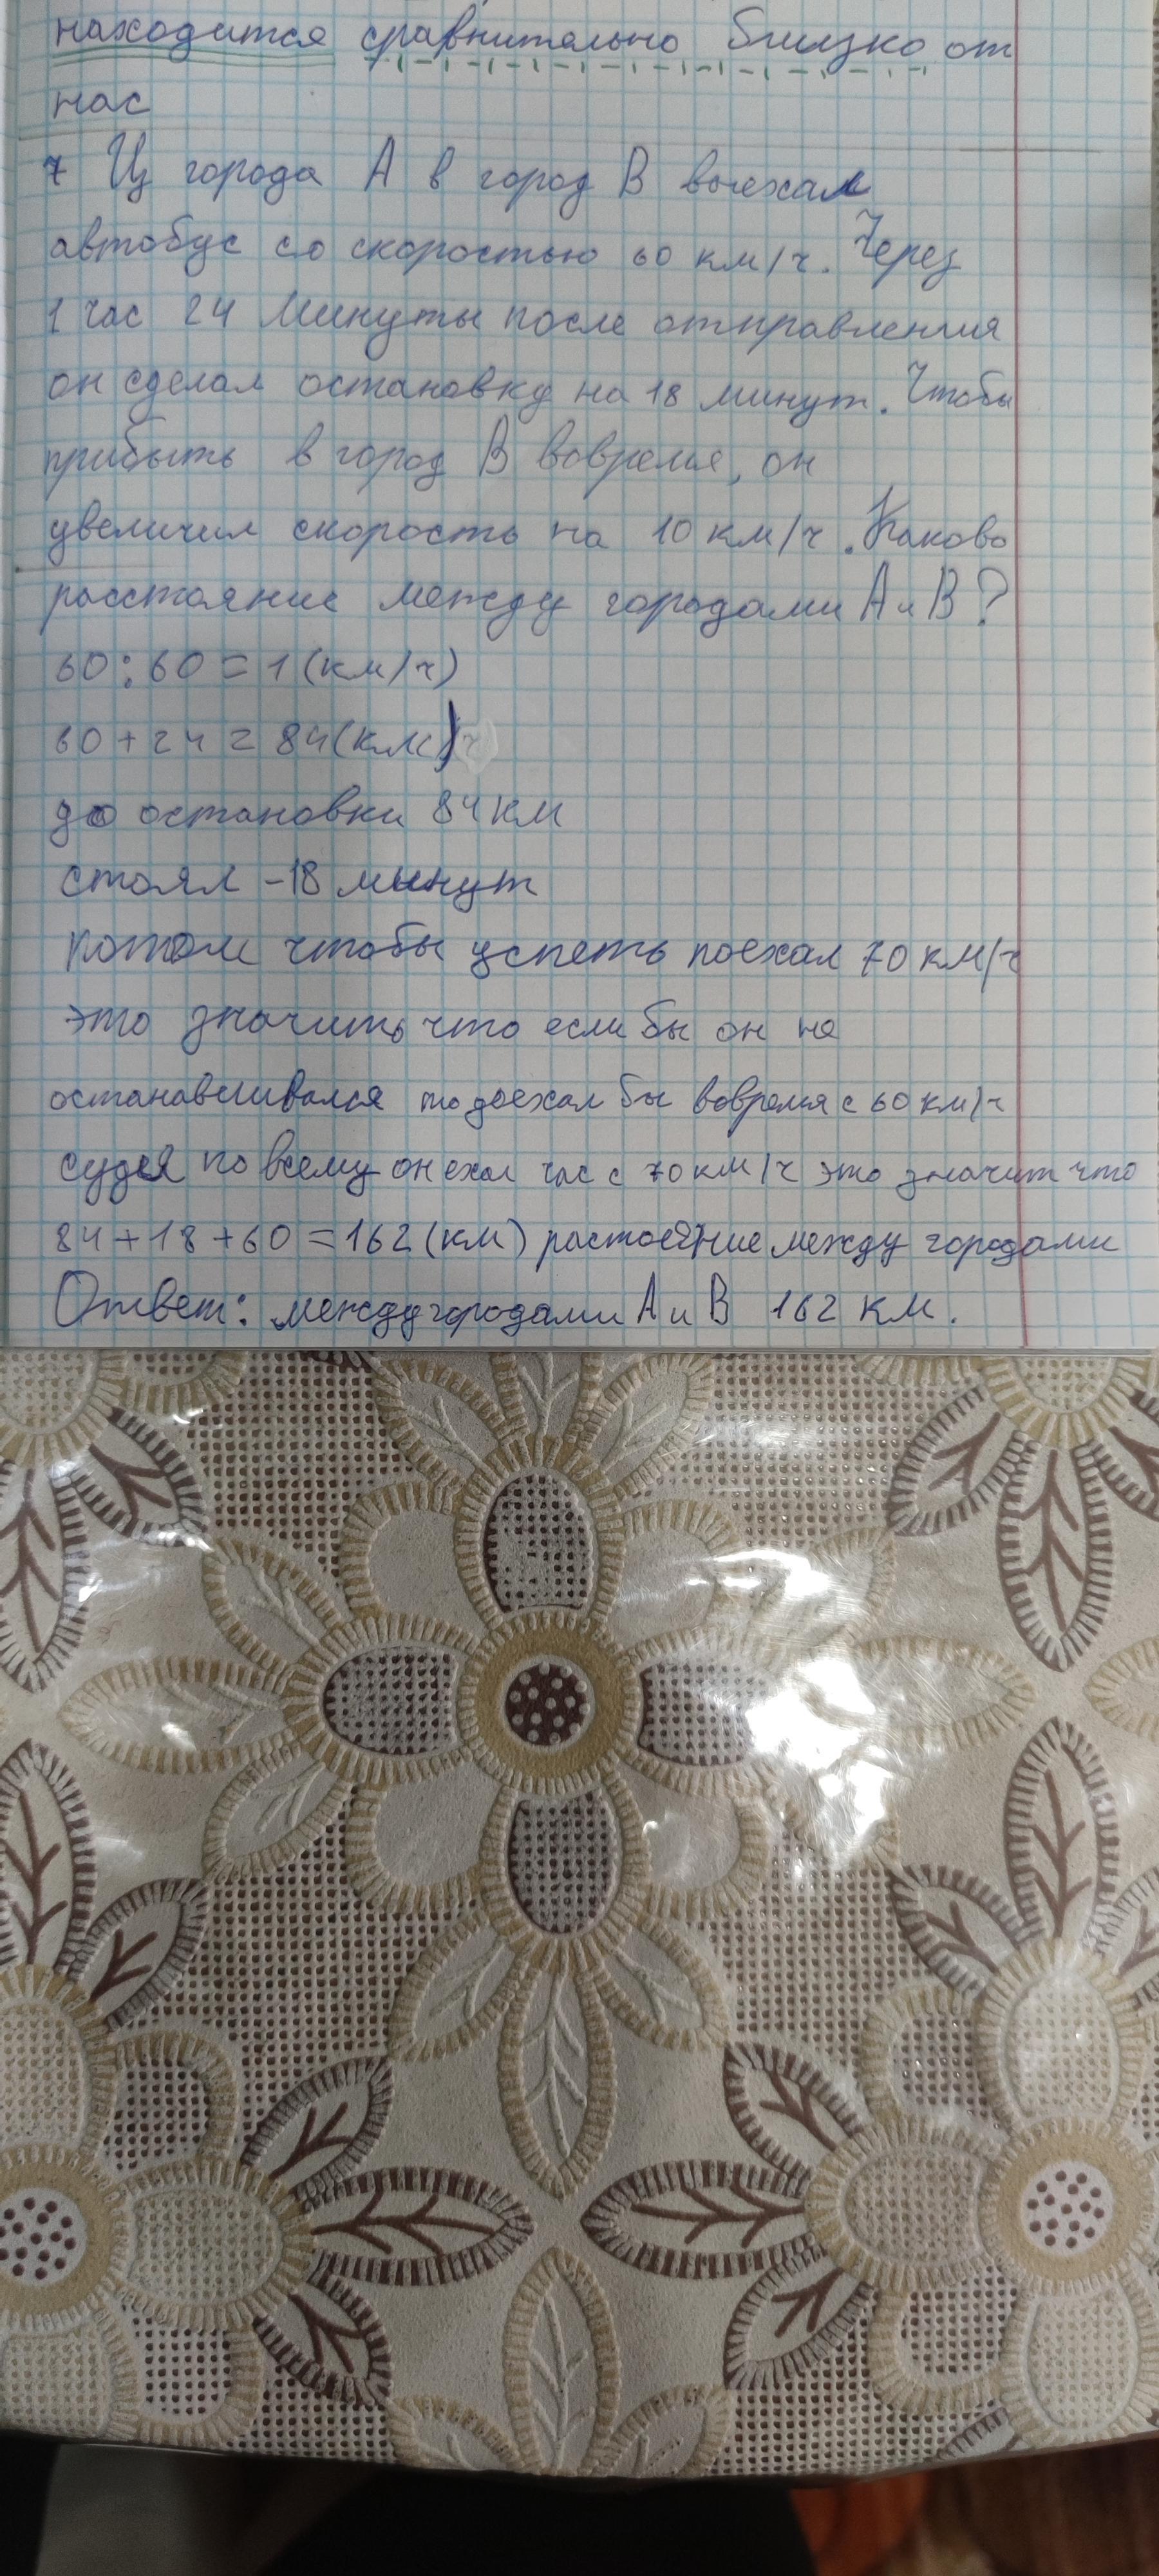 находится сравнительно близко от
нас
7 Из города А в город В выехал
автобус со скоростью 60 км/ч. Через
1 час 24 минуты после отправления
он сделал остановку на 18 минут. Чтобы
прибыть в город В вовремя, он
увеличил скорость на 10 км/ч. Каково
расстояние между городами А и В?
60:60=1(км/ч)
60+24=84(км)
до остановки 84 км
стоял -18 минут
потом чтобы успеть поехал 70 км/ч
это значить что если бы он не
останавливался то доехал бы вовремя с 60 км/ч
судя по всему он ехал час с 70 км/ч это значит что
84+18+60=162(км) растояние между городами
Ответ: между городами А и В 162 км.